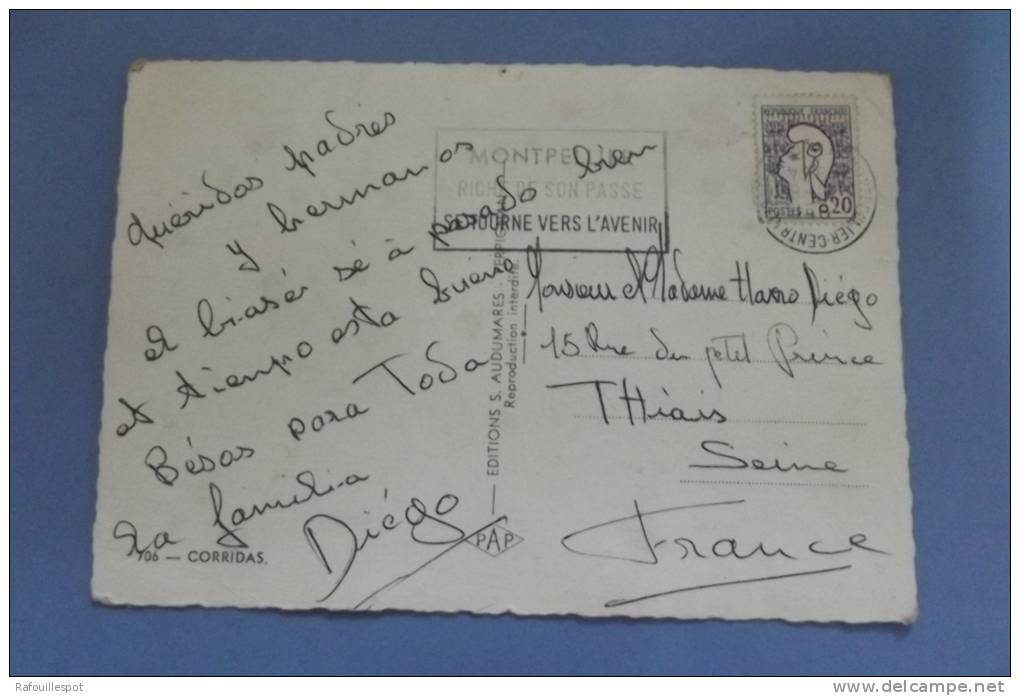 Quéridos padres
y hermanos
el biasér sé à pasado bien
et tiempo esta buéno
Bésos para Toda
la familia
Diégo
706 — CORRIDAS.
EDITIONS S. AUDUMARES - PERPIGNAN
Reproduction interdite.
PAP
MONTPELLIER
RICHE DE SON PASSE
SE TOURNE VERS L'AVENIR
REPUBLIQUE FRANÇAISE
POSTES
0,20
Monsieur et Madame Harro Diégo
15 Rue du petit Prince
THiais
Seine
France
Rafouillespot
www.delcampe.net